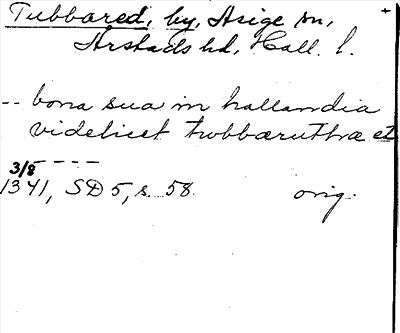 Tubbared, by, Asige sn,
Årstads hd, Hall. l.
-- bona sua in hallandia
videlicet twbbæruthræ et
- - - -
3/8
1341, SD 5, s. 58 orig.